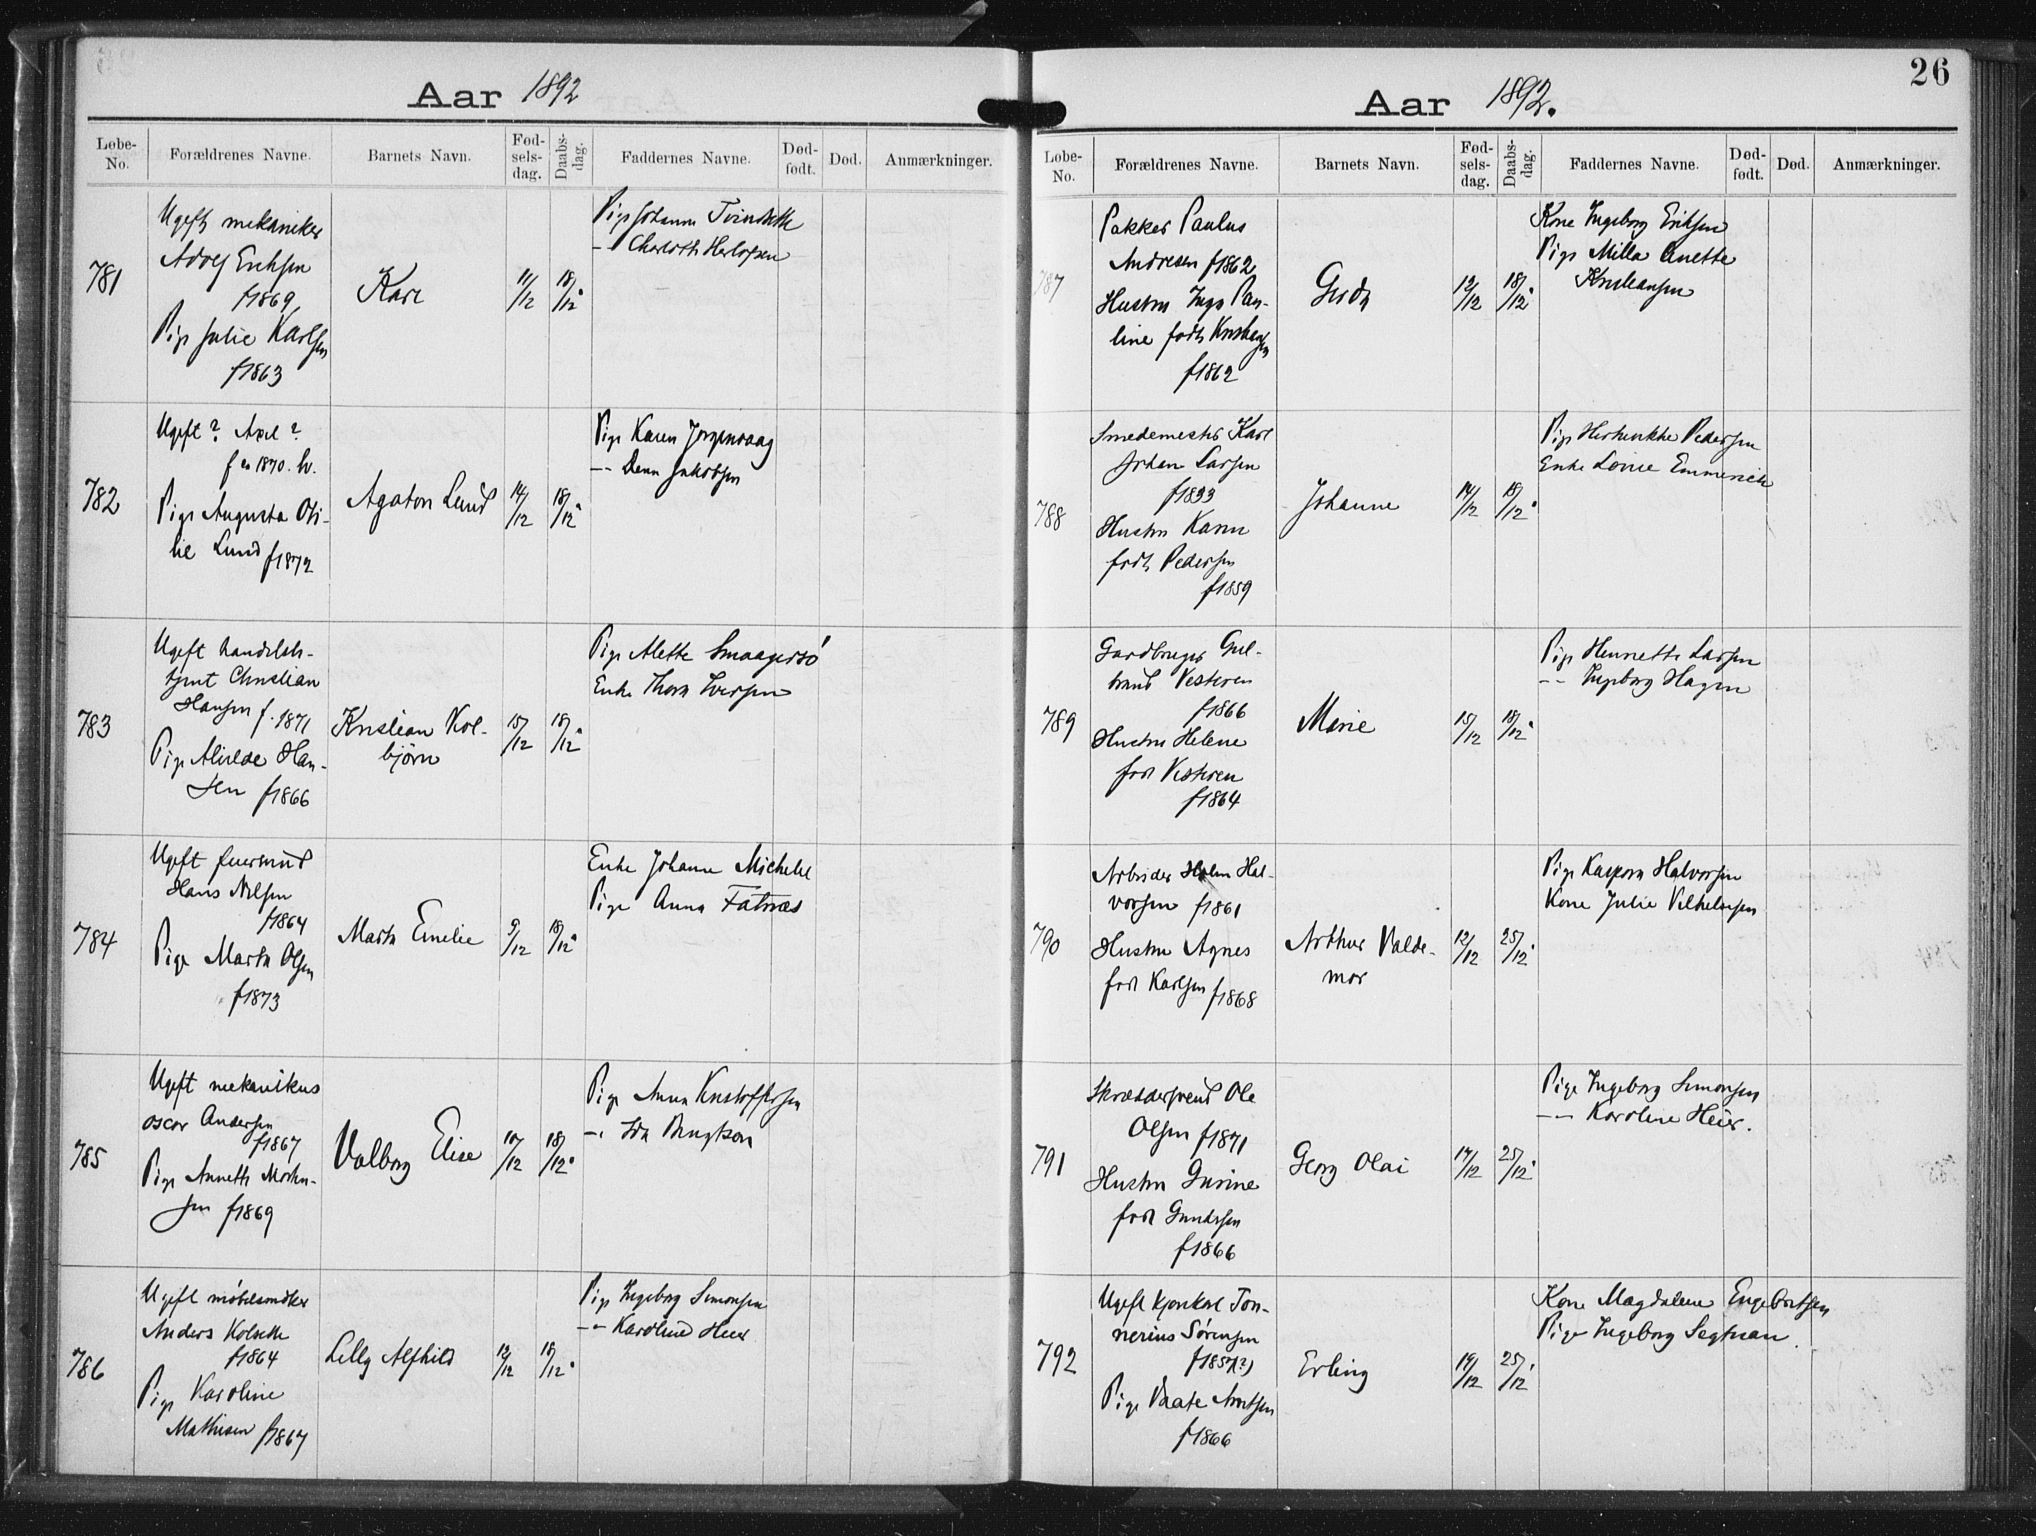 Aar 1892
Løbe-No. Forældrenes Navne. Barnets Navn. Fødselsdag. Daabsdag. Faddernes Navne. Dødfødt. Død. Anmærkninger.
781
Ugift mekaniker
Adolf Eriksen
f1869
Pige Julie Karlsen
f1863
Karl
11/12
18/12
Pige Johanne
— Charlotte
782
Ugift? Axel?
f 1870.
Pige Augusta Oti-
lie Lund f1872
Agaton Lund
14/12
18/12
Pige Karen
783
Ugift handels-
Christian
Hansen f. 1871
Pige Alvilde Han-
sen f1866
Kristian Kol-
bjørn
15/12
18/12
Pige Alette
Enke Thora Iversen
784
Ugift
Hans Nilsen
f1864
Pige Marta Olsen
f1873
Marta Emelie
9/12
18/12
Enke Johanne
Pige Anna
785
Ugift mekanikus
Oscar Andersen
f1867
Pige Annette
f1869
Valborg Elise
10/12
18/12
Pige Anna Kristoffersen
786
Ugift
Anders Kolseth
f1864
Pige Karoline
Mathisen f1867
Lilly Alfhild
12/12
18/12
Pige Ingeborg Simonsen
—"— Karoline Heier
Aar 1892.
26
Løbe-No. Forældrenes Navne. Barnets Navn. Fødselsdag. Daabsdag. Faddernes Navne. Dødfødt. Død. Anmærkninger.
787
Pakker Paulus
Andresen f1862
Hustru Inga Pau-
line født
f1862
Gerda
12/12
18/12
Kone Ingeborg Eriksen
Pige Milla Anette
Kristiansen
788
Smedemester Karl
Johan Larsen
Hustru Karen
født Pedersen
f1859
Johanne
14/12
18/12
Pige Pedersen
Enke Lovise Emmerich
789
Gardbruger Gul-
brand Vesteren
f1866
Hustru Helene
født Vesteren
f1864
Marie
15/12
18/12
Pige Henriette Larsen
—"— Ingeborg Hagen
790
Arbeider Hal-
vorsen f1861
Hustru Agnes
født Karlsen f1868
Arthur Valde-
mar
12/12
25/12
Pige Kaspara Halvorsen
Kone Julie Vilhelmsen
791
Skræddersvend Ole
Olsen f1871
Hustru Gurine
født Gundersen
f1866
Georg Olai
14/12
25/12
Pige Ingeborg Simonsen
—"— Karoline Heier.
792
Ugift Kjørekar Ton-
nerius Sørensen
f1857(?)
Pige Arntsen
f1866
Erling
19/12
25/12
Kone Magdalene Engebretsen
Pige Ingeborg